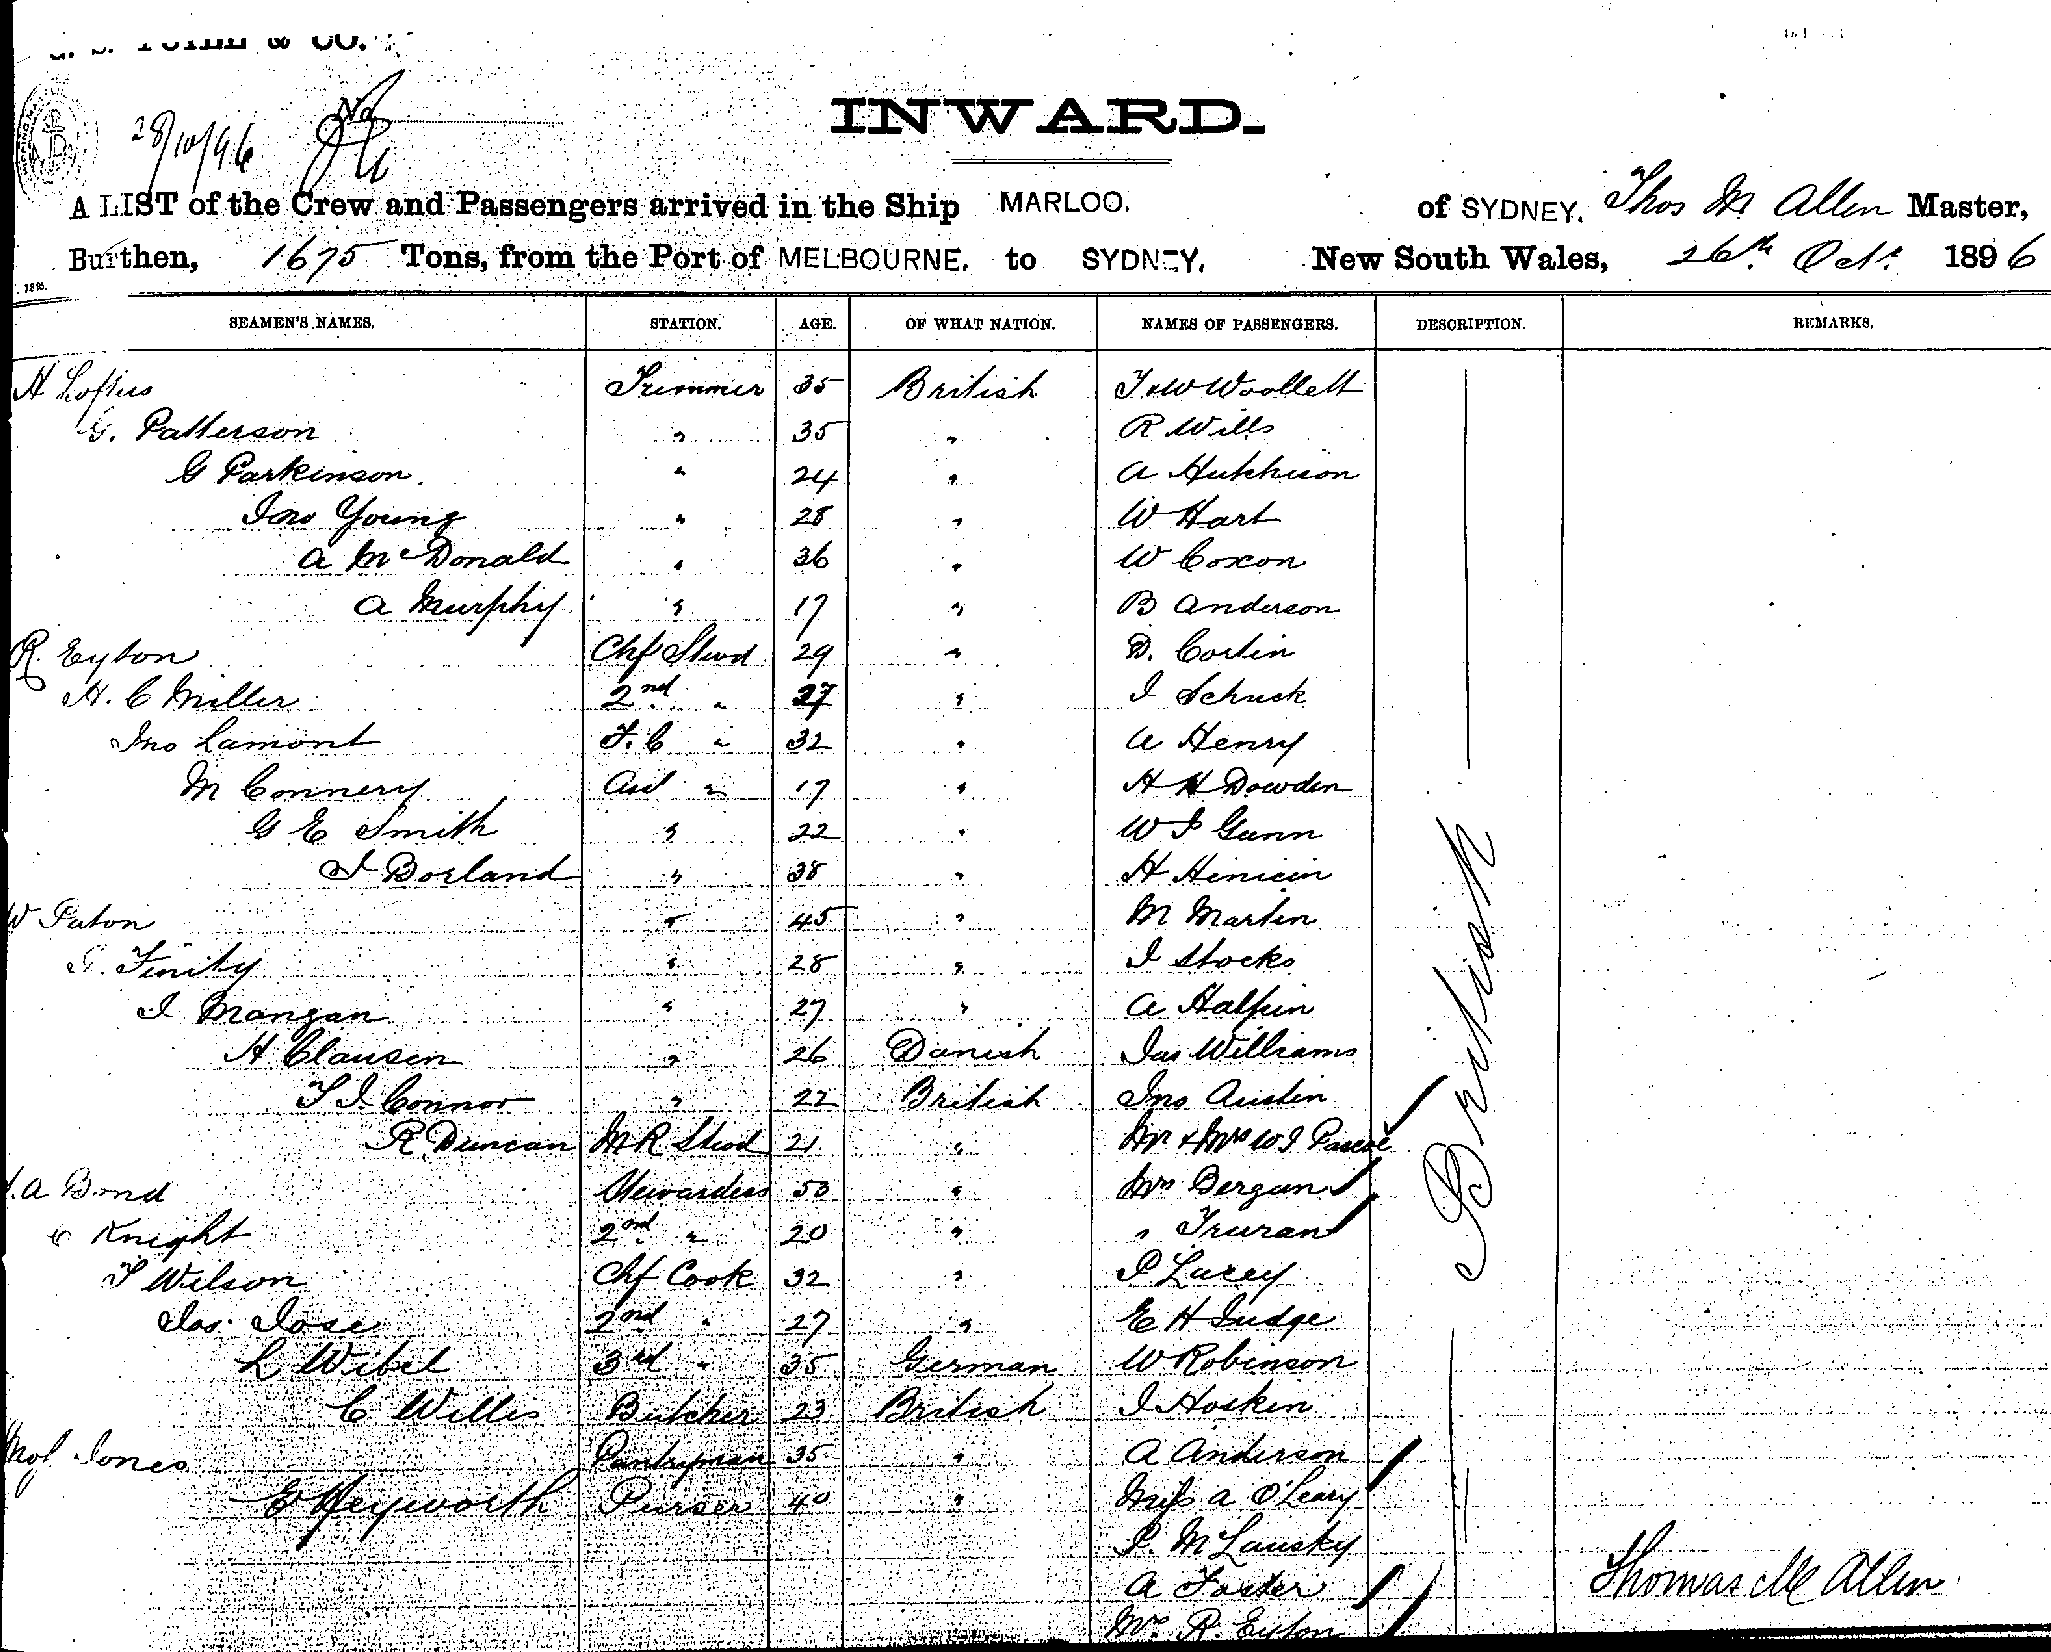 & CO.
28/10/96
No
INWARD.
A LIST of the Crew and Passengers arrived in the Ship MARLOO. of SYDNEY. Thos M Allen Master,
Burthen, 1675 Tons, from the Port of MELBOURNE. to SYDNEY. New South Wales, 26th Oct. 1896
SEAMEN'S NAMES. STATION. AGE. OF WHAT NATION. NAMES OF PASSENGERS. DESCRIPTION. REMARKS.
H Loftus Trimmer 35 British J & W Woollett
G. Patterson " 35 " R Wills
G Parkinson. " 24 " A Hutchison
Jno Young " 28 " W Hart
A McDonald " 36 " W Coxon
A Murphy " 17 " B Anderson
R. Eyton Chf Stwd 29 " D. Costin
H. C Miller 2nd " 27 " J Schuck
Jno Lamont F. C " 32 " A Henry
M Connery Asst " 17 " H H Dowden
G E Smith " 22 " W J Gunn
J Borland " 38 " H
W Paton " 45 " M Martin
G. Finity " 28 " J Stocks
J Mangan " 27 " A Halpin
H Clausen " 26 Danish Jas Williams
T J Connor " 22 British Jno Austin
R. Duncan M R Stwd 21 " Mr & Mrs W J Pascoe
A Bond Stewardess 50 " Mrs Bergan
Knight 2nd " 20 " " Truran
T Wilson Chf Cook 32 " P Lucey
Jas. Jose 2nd " 27 " E H Judge
L Wibel 3rd " 35 German W Robinson
C Willis Butcher 23 British J Hosken
Jones Pantryman 35 " A Anderson
E Heyworth Purser 40 " Miss A O'Leary
P. McLausky
A Foster
Mrs R. Eyton
British
Thomas M Allen